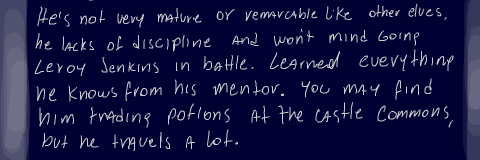 He's not very mature or remarcable like other elves,
he lacks of discipline and won't mind going
Leroy Jenkins in battle. Learned everything
he knows from his mentor. You may find
him trading potions at the castle commons,
but he travels a lot.